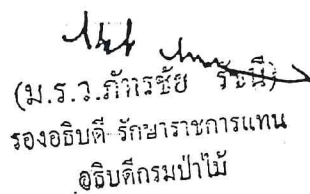 (ม.ร.ว.ภัทรชัย รัชนี)
รองอธิบดี รักษาราชการแทน
อธิบดีกรมป่าไม้